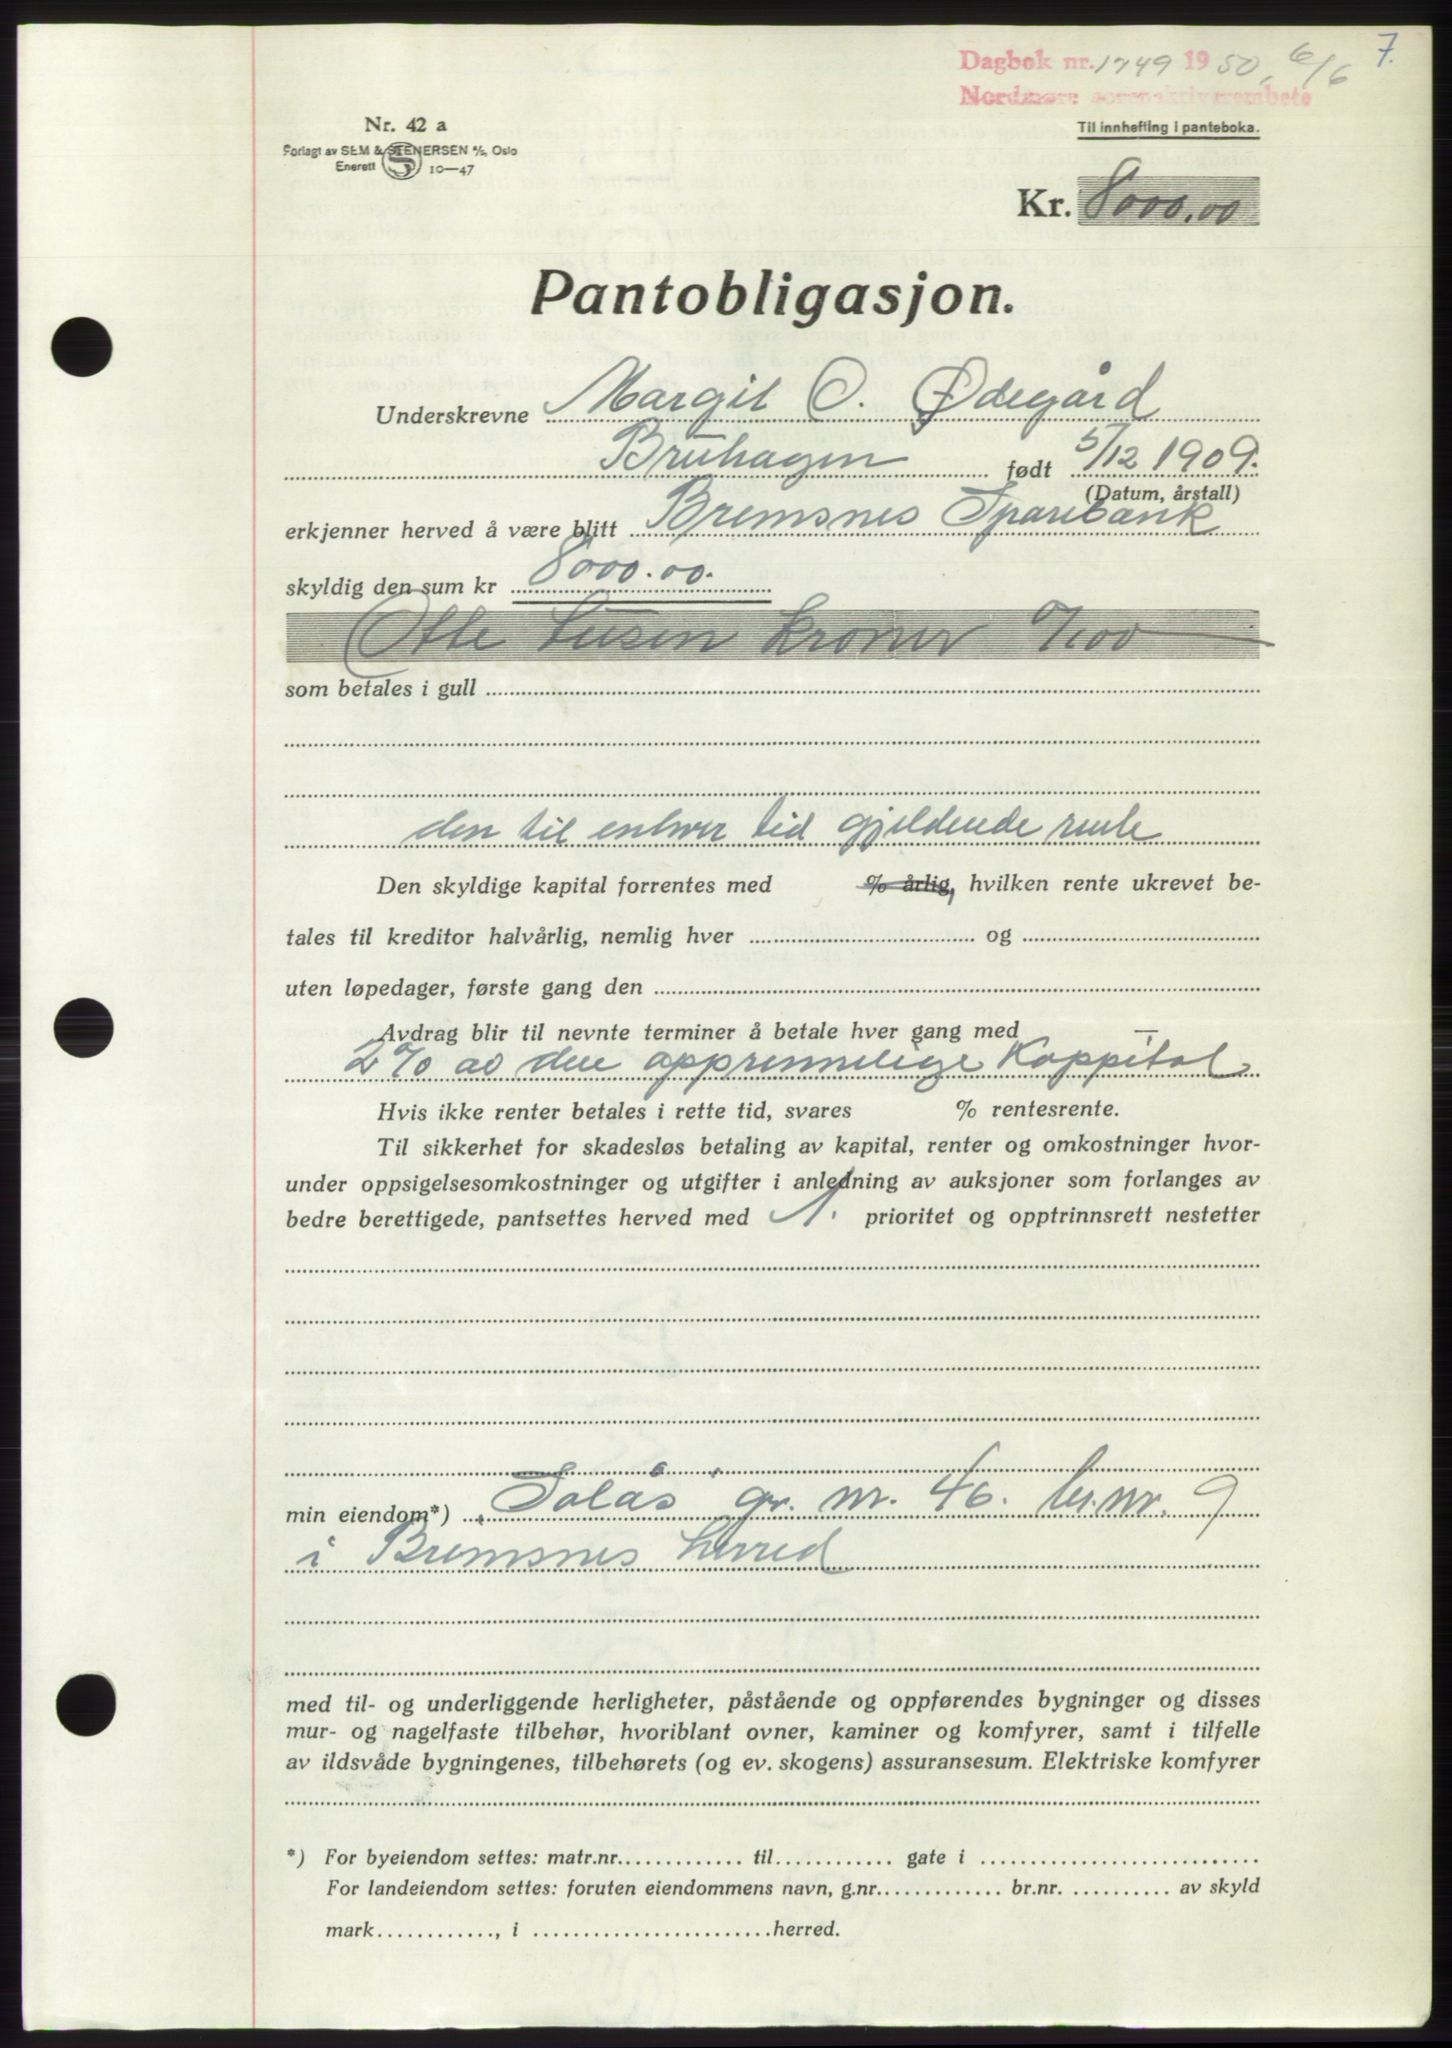 7.
Dagbok nr. 1749 1950, 6/6
Nordmøre sorenskriverembete
Nr. 42 a
Forlagt av SEM & STENERSEN A/S, Oslo
Enerett S 10—47
Til innhefting i panteboka.
Kr. 8000.00
Pantobligasjon.
Underskrevne Margit O. Ødegård
Bruhagen født 5/12 1909.
(Datum, årstall)
erkjenner herved å være blitt Bremsnes Sparebank
skyldig den sum kr 8000.00.
Otte tusen kroner 0/100
som betales i gull
den til enhver tid gjeldende rente
Den skyldige kapital forrentes med % årlig, hvilken rente ukrevet be-
tales til kreditor halvårlig, nemlig hver og
uten løpedager, første gang den
Avdrag blir til nevnte terminer å betale hver gang med —
2% av den opprinnelige Kappital
Hvis ikke renter betales i rette tid, svares % rentesrente.
Til sikkerhet for skadesløs betaling av kapital, renter og omkostninger hvor-
under oppsigelsesomkostninger og utgifter i anledning av auksjoner som forlanges av
bedre berettigede, pantsettes herved med 1. prioritet og opptrinnsrett nestetter
min eiendom*) Solås gr. nr. 46. br.nr. 9
i Bremsnes herred
med til- og underliggende herligheter, påstående og oppførendes bygninger og disses
mur- og nagelfaste tilbehør, hvoriblant ovner, kaminer og komfyrer, samt i tilfelle
av ildsvåde bygningenes, tilbehørets (og ev. skogens) assuransesum. Elektriske komfyrer
*) For byeiendom settes: matr.nr. til gate i
For landeiendom settes: foruten eiendommens navn, g.nr. br.nr. av skyld
mark, i herred.